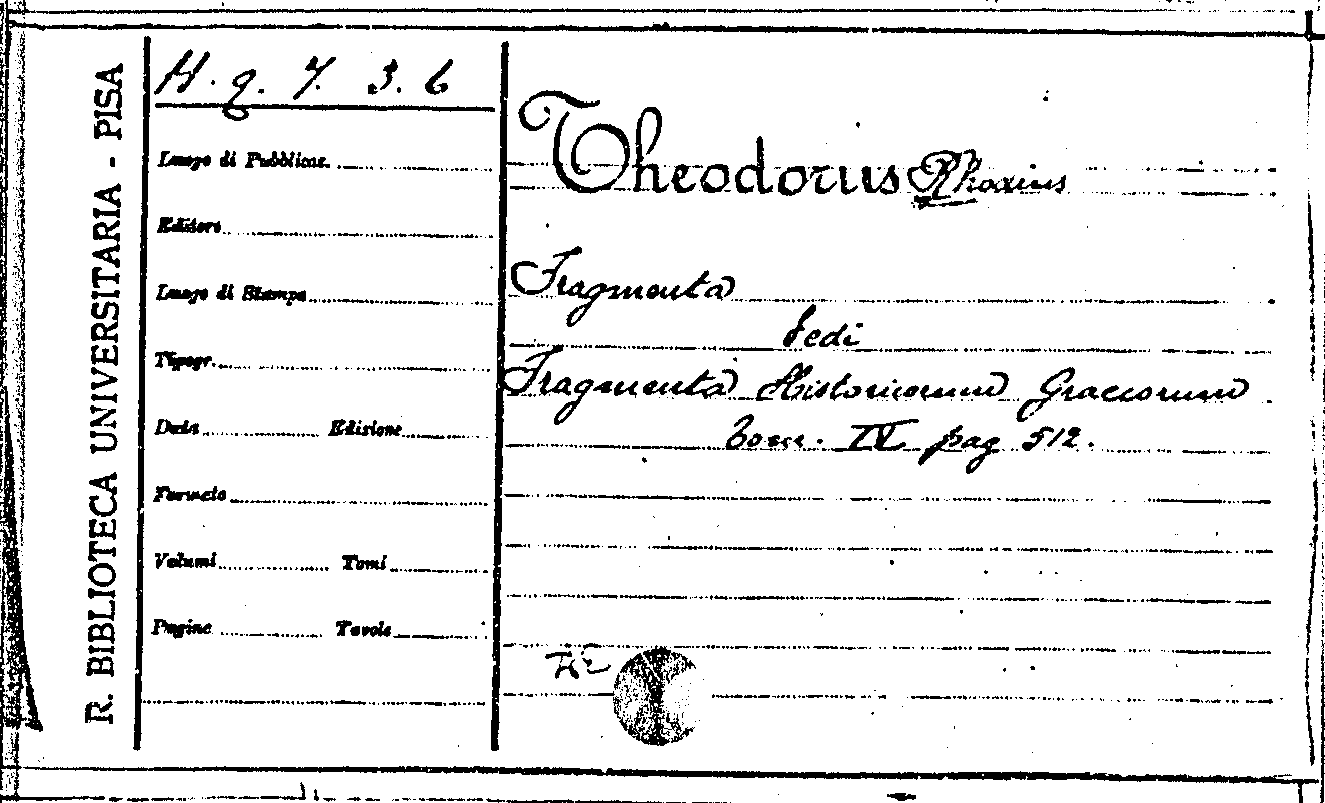 R. BIBLIOTECA UNIVERSITARIA - PISA
H. q. 7. 3. 6
Luogo di Pubblicaz.
Editore
Luogo di Stampa
Tipogr.
Data Edizione
Formato
Volumi Tomi
Pagine Tavole
Theodorus Rhodius
Fragmenta
Vedi
Fragmenta Historicorum Graecorum
Tom. IV pag 512.